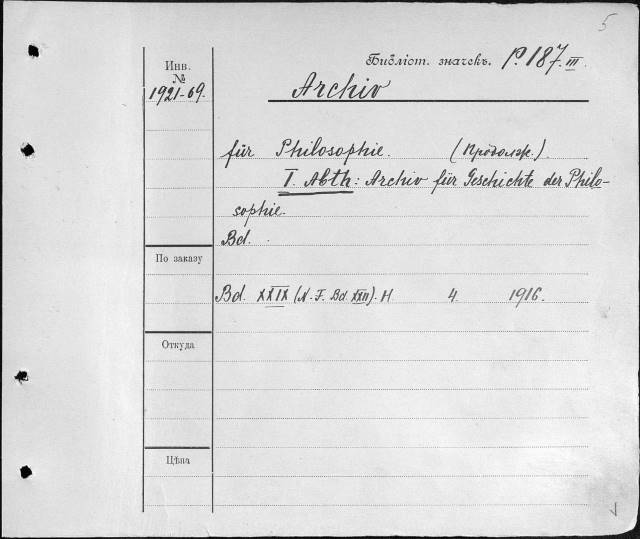 5
Библіот. значекъ. P. 187. III.
Инв.
№
1921-69.
Archiv
für Philosophie. (Продолж.).
I. Abth: Archiv für Geschichte der Philo-
sophie.
Bd.
По заказу
Bd. XXIX (N. F. Bd. XXII). H 4. 1916.
Откуда
Цѣна